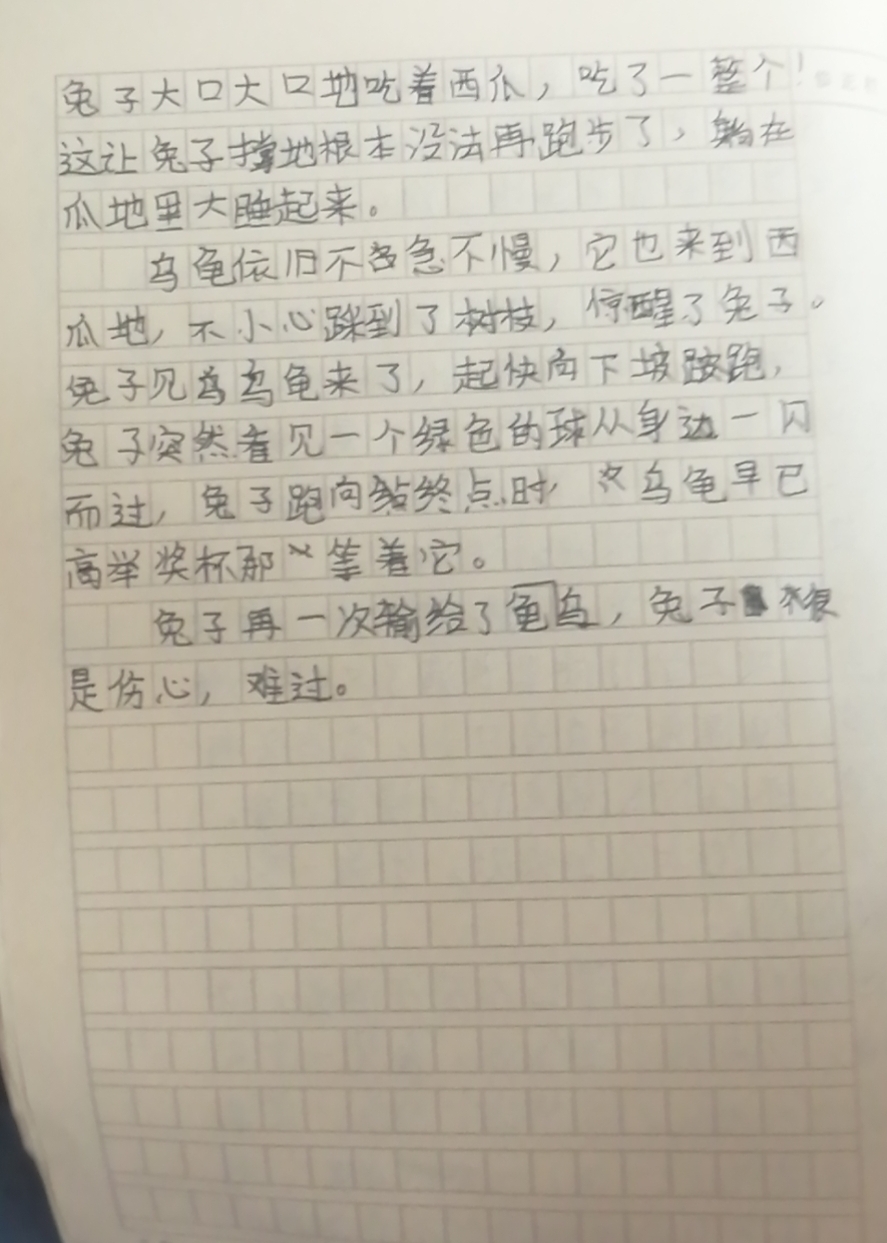 兔子大口大口地吃着西瓜，吃了一整个！
这让兔子撑地根本没法再跑步了，躺在
瓜地里大睡起来。
乌龟依旧不急不慢，它也来到西
瓜地，不小心踩到了树枝，惊醒了兔子。
兔子见乌龟来了，起快向下坡跑，
兔子突然看见一个绿色的球从身边一闪
而过，兔子跑向终点时，乌龟早已
高举奖杯那等着它。
兔子再一次输给了龟乌，兔子很
是伤心，难过。